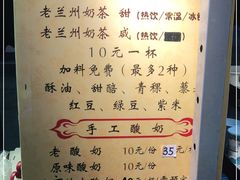 老兰州奶茶 甜(热饮/常温/冰
老兰州奶茶 咸(热饮/
10元一杯
加料免费(最多2种)
酥油、甜醅、青稞、葡
红豆、绿豆、紫米
手工酸奶
老酸奶 10元/份 35元/
原味酸奶 10元/